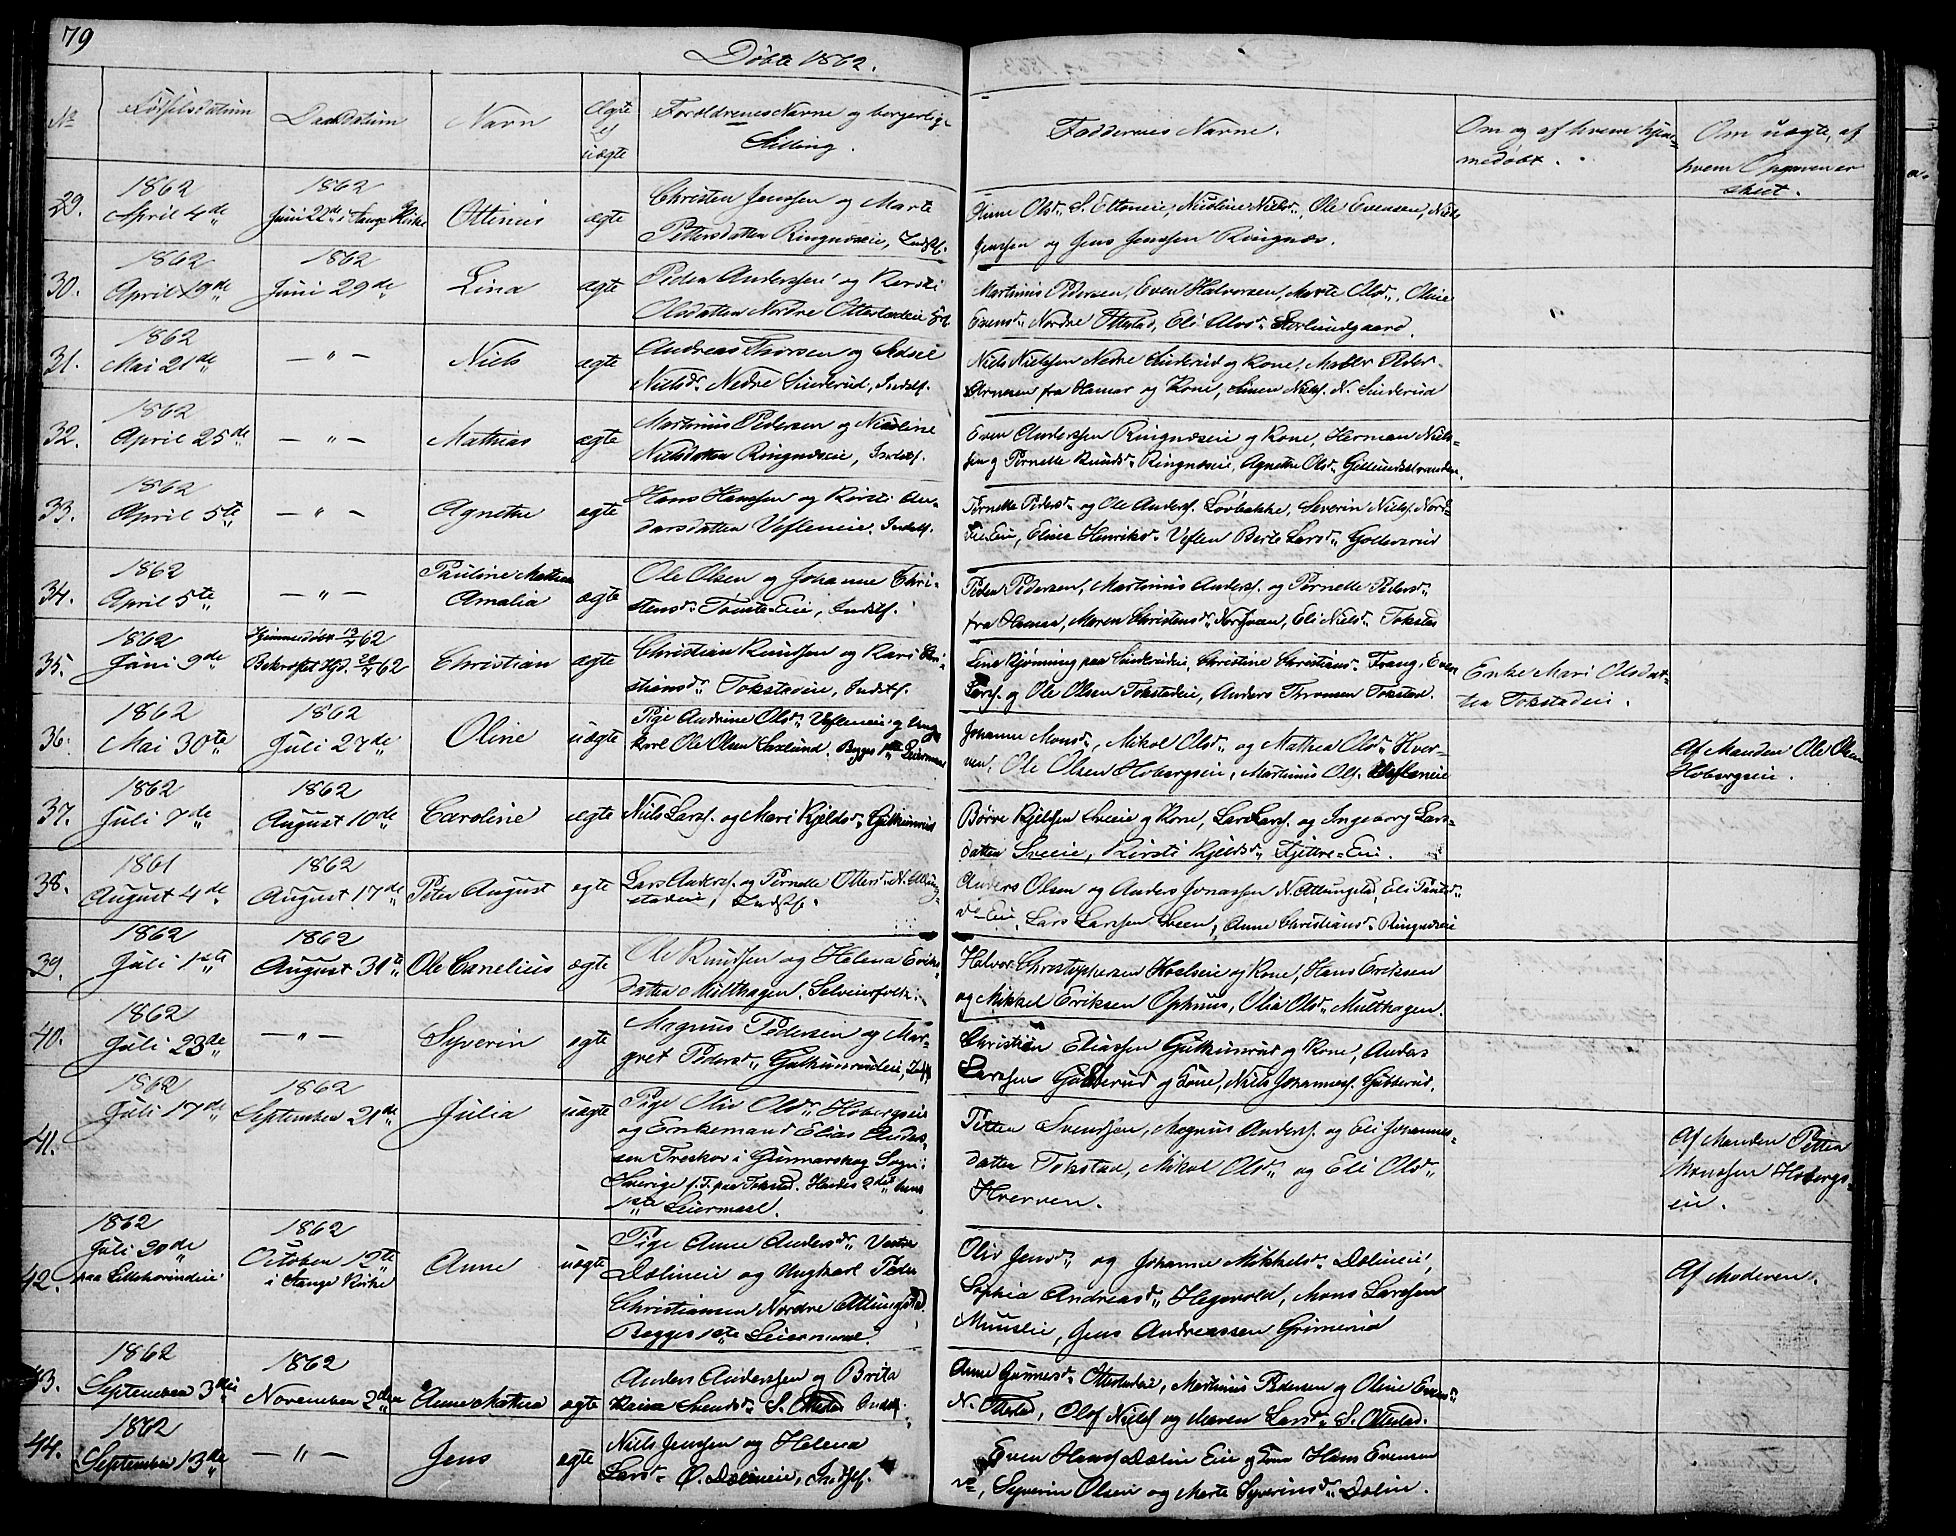 79
Døbte 1862.
No Fødselsdatum Daabsdatum Navn Ægte el uægte Foreldrenes Navne og borgerlige Stilling. Faddernes Navne. Om og af hvem hjemmedøbt. Om uægte, af hvem Opgaven er skeet.
29. 1862 April 4de 1862 Juni 22de i Stange Kirke Ottinus ægte Christen Jenssen og Marte
Pettersdatter Ringnæseie, Indst.
Anne Olsd., Nicoline Nielsd., Ole Evensen, Niels
Jenssen og Jens Jenssen Ringnæs.
30. 1862 April 19de 1862 Juni 29de Lina ægte Peder Anderssen og Kersti
Olsdatter Nordre Ottestadeie
Martinus Pedersen, Even Halvorsen, Marte Olsd., Oline
Evensd. Nordre Ottestad, Eli Olsd.
31. 1862 Mai 21de — " — Niels ægte Andreas Thorsen og Sidsel
Nielsd. Nedre Sinderud, Indst.
Niels Nielssen Nedre Sinderud og Kone, Maler Peder
Arnesen fra Hamar og Kone, Simen Nielss. N. Sinderud
32. 1862 April 25de — " — Mathias ægte Martinus Pedersen og Nicoline
Nielsdatter Ringnæseie, Indst.
Even Anderssen Ringnæseie og Kone, Herman Niels-
sen og Pernelle Knudsd. Ringnæseie, Agnethe Olsd.
33. 1862 April 5te — " — Agnethe ægte Hans Hanssen og Kersti An-
dersdatter Vefleneie, Indst.
Pernelle Pedersd. og Ole Anderss. Løvbakke, Severin Nielss.
Eline Henriksd. Veflen Berte Larsd.
34. 1862 April 5te — " — Pauline Mathea
Amalia ægte Ole Olsen og Johanne Chri-
stensd. Eie, Indst.
Peder Pedersen, Martinus Anderss. og Pernelle Pedersd.
fra Hamar, Maren Christensd., Eli Nielsd. Tokstad
35. 1862 Juni 9de Hjemmedøbt 13/7 62
Bekræftet 62 Christian ægte Christian Knudssen og Kari Chri-
stiansd. Tokstadeie, Indst.
Christine Christiansd. Frang, Even
Larss. og Ole Olsen Tokstadeie, Anders Thronsen Tokstad.
Enke Mari Olsdat-
ter Tokstadeie.
36. 1862 Mai 30te 1862 Juli 27de Oline uægte Pige Andrine Olsd. Vefleneie og Ung-
karl Ole Olsen. Begges 1ste Leiermaal
Johanne Monsd., Mikol Olsd. og Mathea Olsd. Hver-
ven, Ole Olsen Hobergseie, Martinus Ols. Vefleneie
Af Manden Ole Olsen
Hobergseie.
37. 1862 Juli 7de 1862 August 10de Caroline ægte Niels Larss. og Mari Kjeldsd. Gulkunrud
Børre Kjelssen Sveeie og Kone, Lars Larss. og Ingeborg Lars-
datter Sveeie, Kirsti Kjeldsd. Eie.
38. 1861 August 4de 1862 August 17de Peter August ægte Lars Anderss. og Pernelle Ottersd. N. Atlung-
stadeie, Indst.
Anders Olsen og Anders Jonassen N. Atlungstad, Eli
Lars Larssen Sveen, Anne Christiansd. Ringnæseie
39. 1862 Juli 1ste 1862 August 31te Ole Cornelius ægte Ole Knudssen og Helena Eriks-
datter Multhagen. Selveierfolk.
Halvor Christophersen og Kone, Hans Eriksen
og Mikkel Eriksen Ophuus, Olia Olsd. Multhagen.
40. 1862 Juli 23de — " — Syverin ægte Magnus Pedersen og Mar-
gret Pedersd. Gulkunrudeie, Indst.
Christian Eliassen Gulkunrud og Kone, Anders
Larssen Gubberud og Kone, Niels Johanness. Gubberud.
41. 1862 Juli 17de 1862 September 21de Julia uægte Pige Oliv Olsd. Hobergseie
og Enkemand Elias Anders-
sen Treskov i Gunnarskog Sogn i
Sverige p.T. paa Tokstad. Hendes 2det hans
1ste Leiermaal.
Petter Svendsen, Magnus Anderss. og Eli Johannes-
datter Tokstad, Mikol Olsd. og Eli Olsd.
Hverven.
Af Manden Petter
Monssen Hobergs-
eie.
42. 1862 Juli 20de
paa Lillehovindeie 1862 October 12te
i Stange Kirke Anne uægte Pige Anne Andersd. Vestre
Dælineie og Ungkarl Peder
Christiansen Nordre Atlungstad.
Begges 1ste Leiermaal
Oliv Jensd. og Johanne Mikkelsd. Dælineie,
Sophia Andreasd. Hegsvold, Mons Larssen
Jens Andreassen Grimerud
Af Moderen.
43. 1862 September 3die 1862 November 2den Anne Mathea ægte Anders Anderssen og Brita
Svendsd. S. Ottestad Indst.
Anne Gunnersd. Ottestadeie, Martinus Pedersen og Oline Evensd.
N. Ottestad, Olof Nielss. og Maren Larsd. S. Ottestad.
44. 1862 September 13de — " — Jens ægte Niels Jenssen og Helena
Larsd. Ø. Dælineie, Indst.
Even Hanss. Dælin Eie og Kone Hans Evensen
Syverin Olsen og Marte Syverinsd. Dælin.